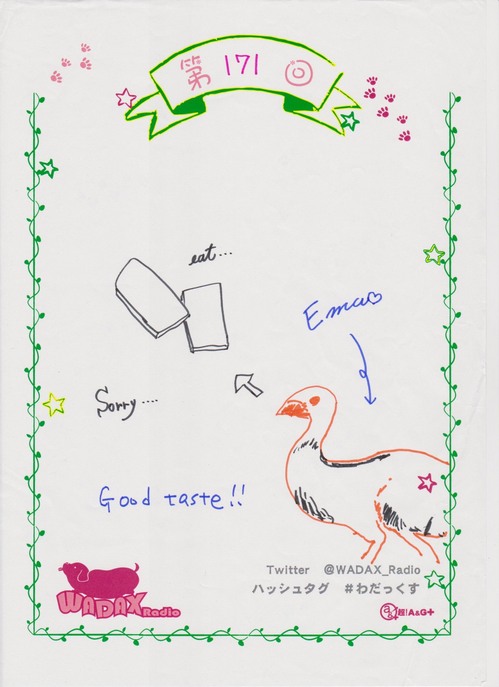 第 171 回
eat...
Emu♡
Sorry....
Good taste!!
Twitter @WADAX_Radio
ハッシュタグ #わだっくす
WADAX Radio
a&g+ 超!A&G+